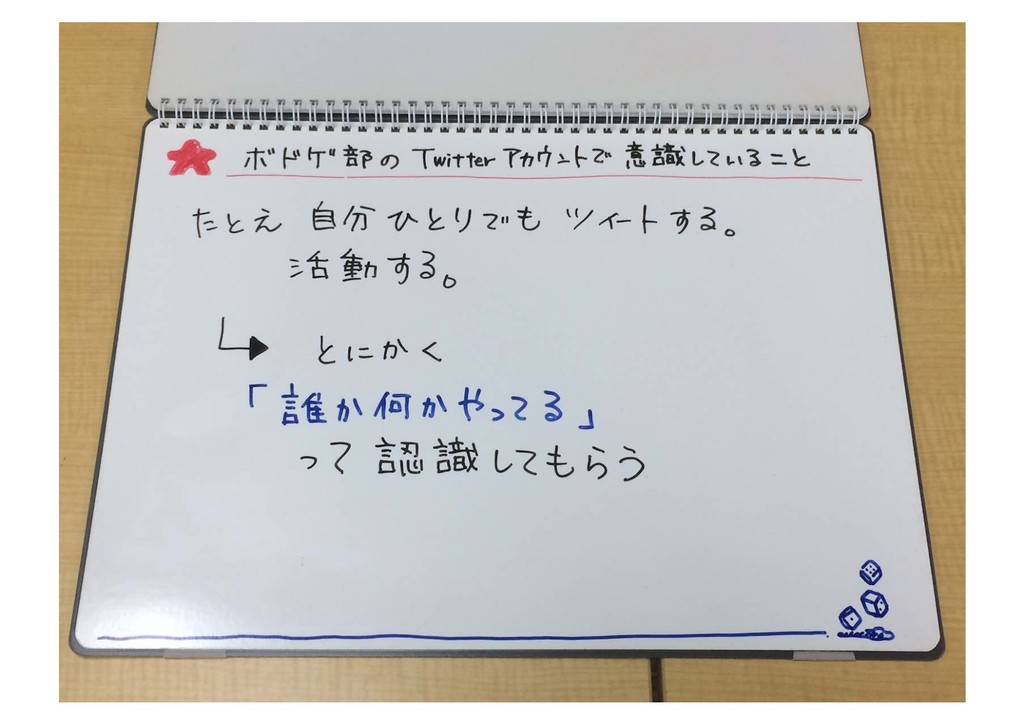 ボドゲ部のTwitterアカウントで意識していること
たとえ 自分ひとりでも ツイートする。
活動する。
とにかく
「誰か何かやってる」
って認識してもらう